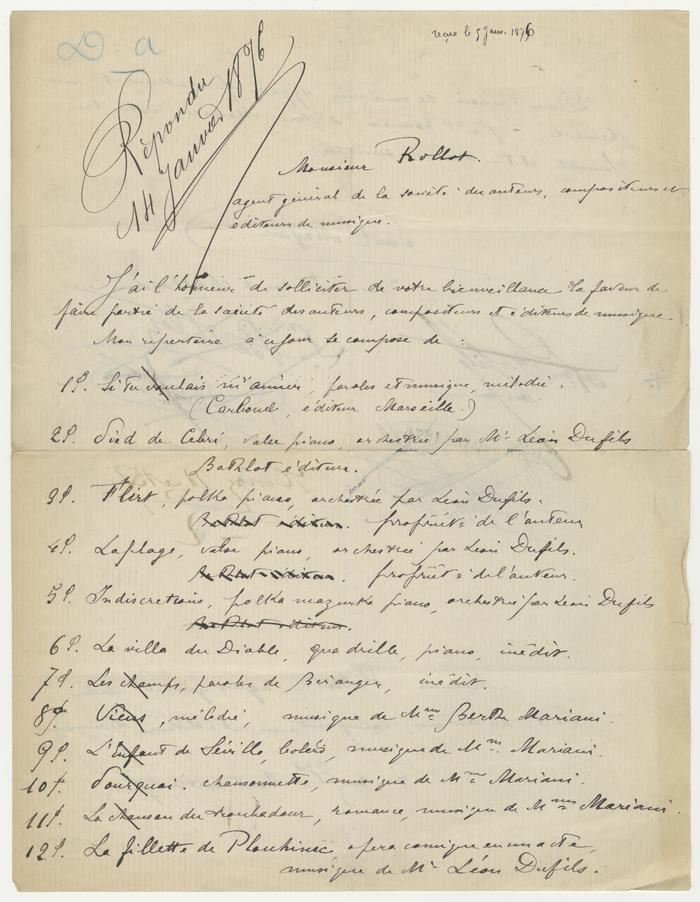 D. a
reçue le 5 Janv. 1876
Répondu
14 Janvier 1876
Monsieur Rollot.
agent général de la société des auteurs, compositeurs et
éditeurs de musique.
J'ai l'honneur de solliciter de votre bienveillance la faveur de
faire partie de la société des auteurs, compositeurs et éditeurs de musique.
Mon répertoire à ce jour se compose de :
1°. Si tu voulais m'aimer, paroles et musique, mélodie.
(Carbonel, éditeur Marseille.)
2°. Pied de Céleri, valse piano, orchestrée par Mr Léon Dufils
Bathlot éditeur.
3°. Flirt, polka piano, orchestrée par Léon Dufils.
Bathlot éditeur. propriété de l'auteur
4°. La plage, valse piano, orchestrée par Léon Dufils.
Bathlot éditeur. propriété de l'auteur.
5°. Indiscrétions, polka mazurka piano, orchestrée par Léon Dufils
Bathlot éditeur.
6°. La villa du Diable, quadrille, piano, inédit.
7°. Les champs, paroles de Béranger, inédit.
8°. Viens, mélodie, musique de Mme Berthe Mariani.
9°. L'Enfant de Séville, boléro, musique de Mme Mariani.
10°. Pourquoi. chansonnette, musique de Mme Mariani.
11°. La chanson du troubadour, romance, musique de Mme Mariani.
12°. La fillette de Plouhinec, opera comique en un acte,
musique de Mr Léon Dufils.